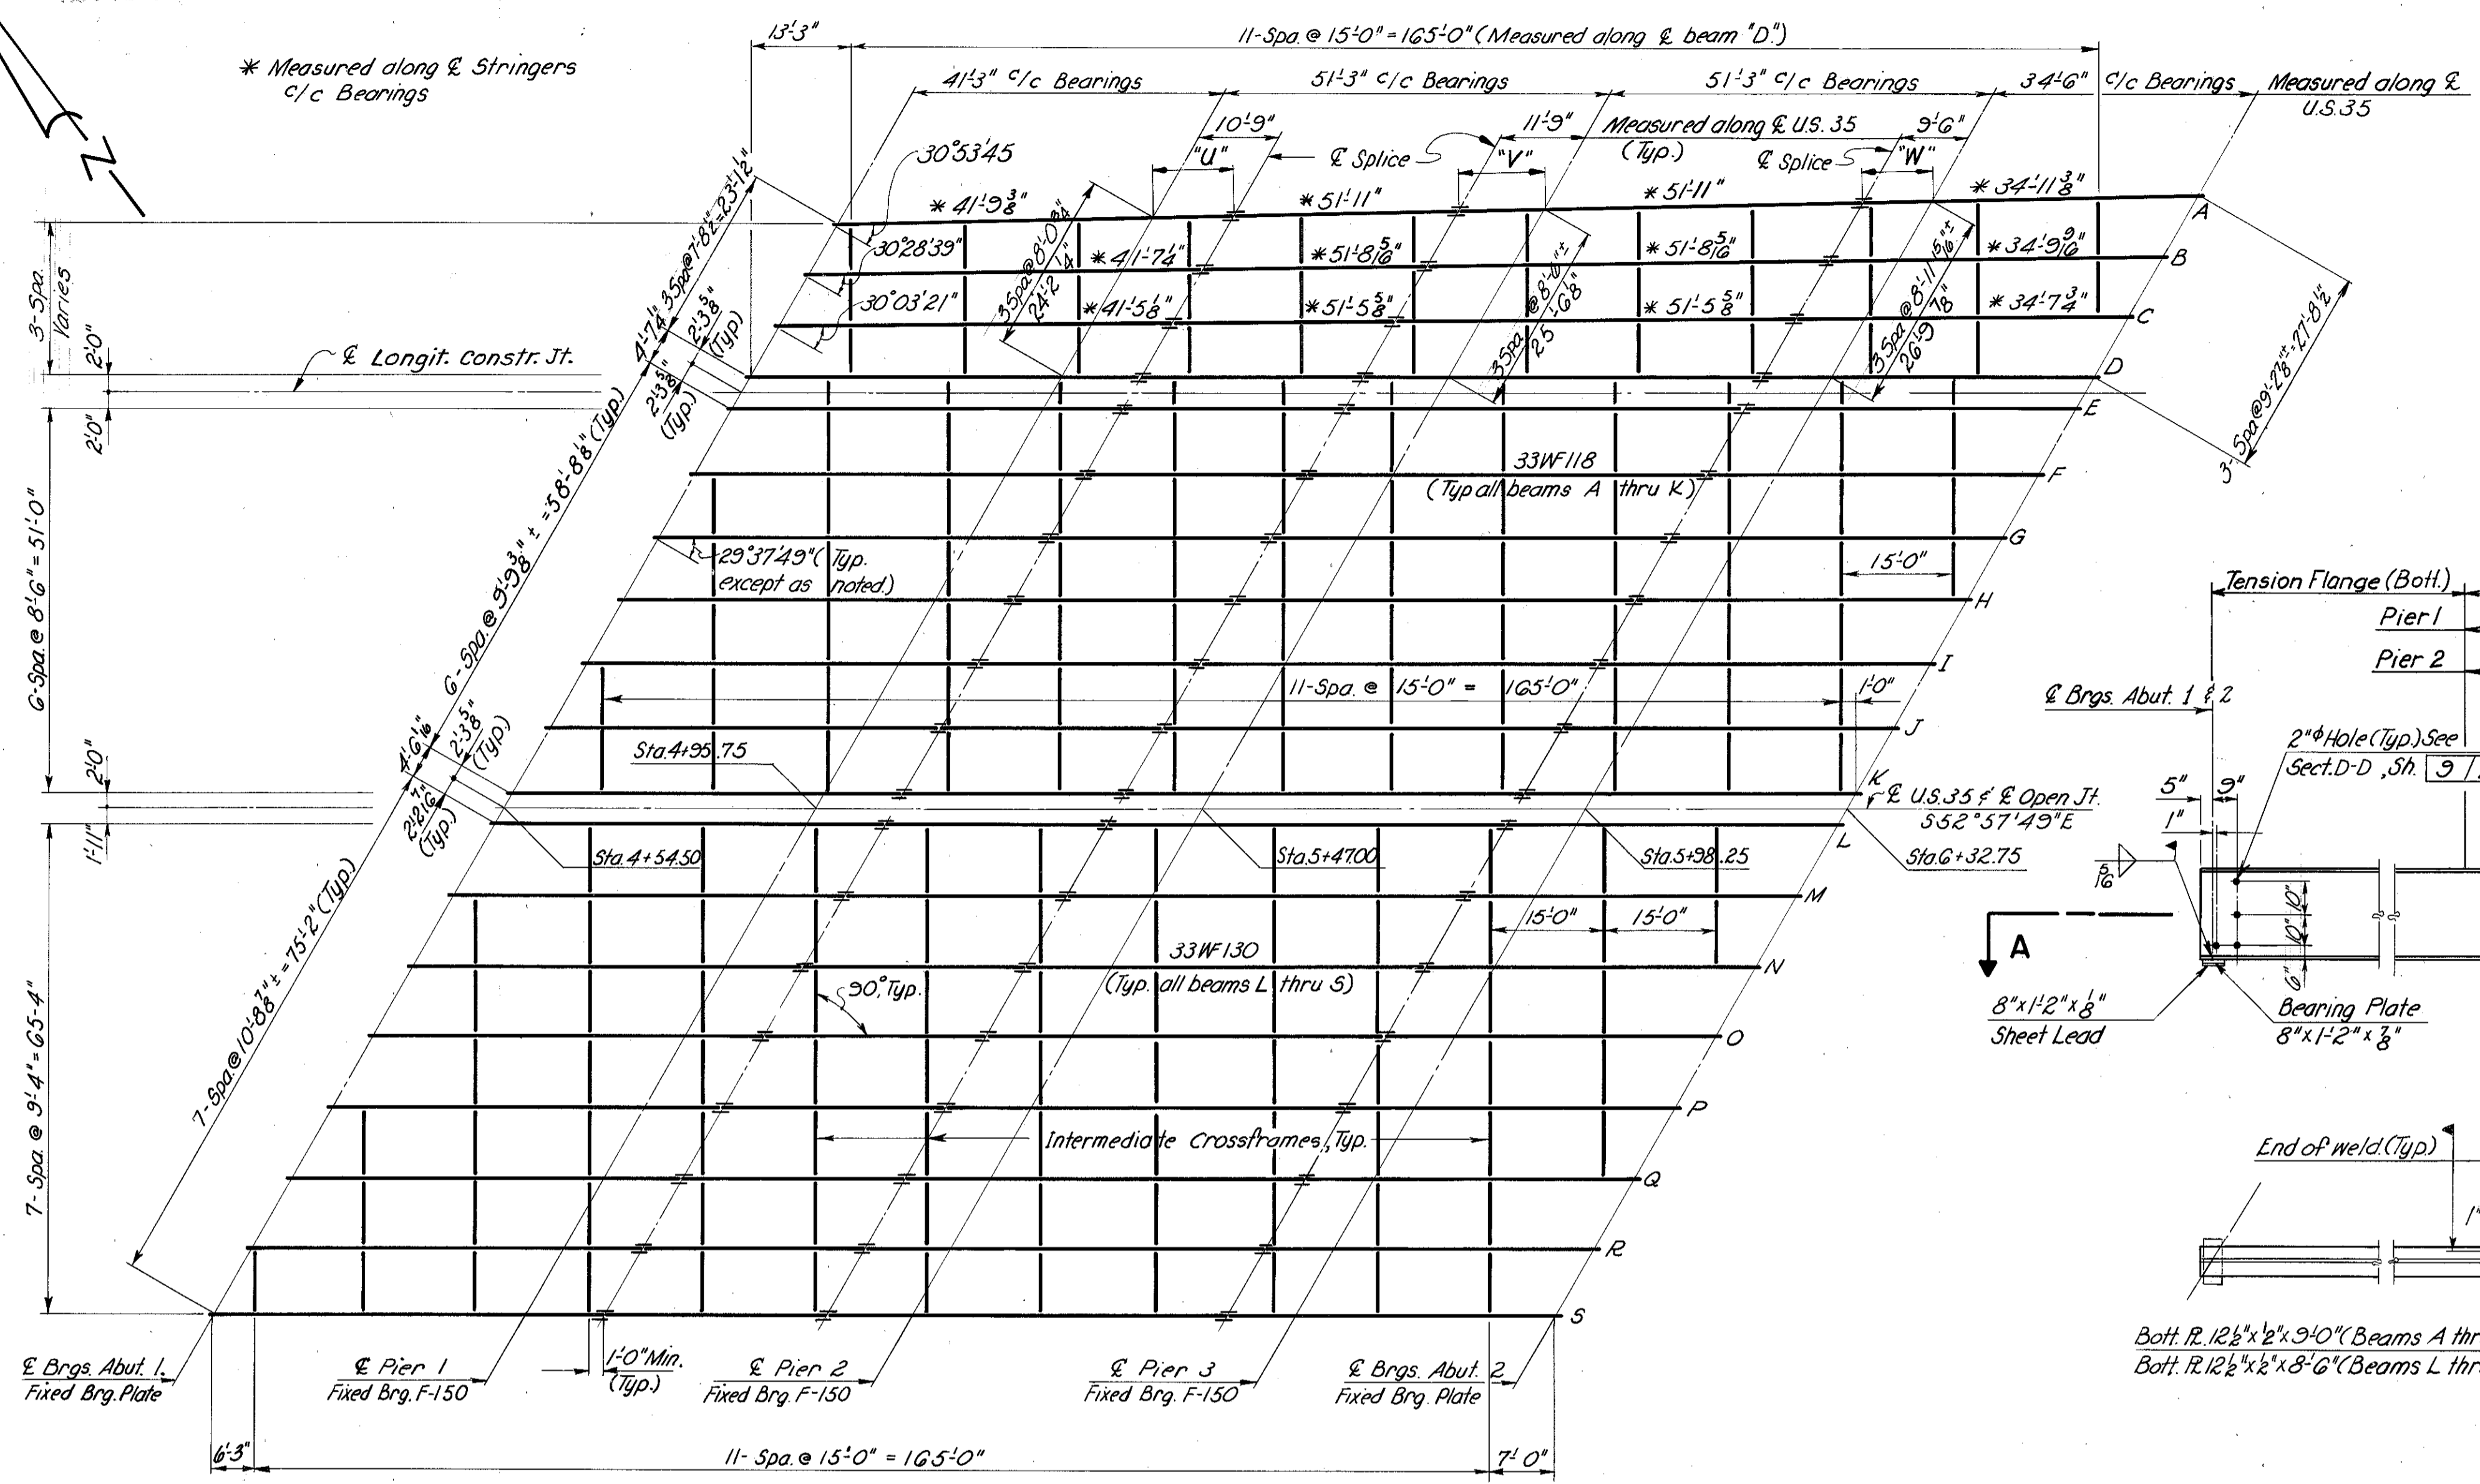 * Measured along ℄ Stringers
c/c Bearings
13'-3"
11-Spa. @ 15'-0" = 165'-0" (Measured along ℄ beam "D".)
41'-3" c/c Bearings
51'-3" c/c Bearings
51'-3" c/c Bearings
34'-6" c/c Bearings
Measured along ℄
U.S.35
10'-9"
11'-9"
Measured along ℄ U.S. 35
(Typ.)
9'-6"
"U"
℄ Splice
"V"
℄ Splice
"W"
N
30°53'45
30°28'39"
30°03'21"
* 41'-9 3/8"
* 51'-11"
* 51'-11"
* 34'-11 3/8"
A
* 41'-7 1/4"
* 51'-8 5/16"
* 51'-8 5/16"
* 34'-9 9/16"
B
* 41'-5 1/8"
* 51'-5 5/8"
* 51'-5 5/8"
* 34'-7 3/4"
C
D
E
F
G
H
I
J
K
L
M
N
O
P
Q
R
S
3 Spa @ 7'-8 1/2" = 23'-1 1/2"
3 Spa @ 8'-0 3/4"
24'-2 1/4"
25'-6 1/8"
26'-9 7/8"
3 Spa @ 8'-11 5/16" ±
3- Spa @ 9'-2 7/8" ± = 27'-8 1/2"
3-Spa.
Varies
2'-0"
2'-0"
℄ Longit. Constr. Jt.
4'-7 1/4"
2'-3 5/8"
(Typ)
2'-3 5/8"
(Typ.)
6-Spa. @ 8'-6" = 51'-0"
6-Spa. @ 9'-9 3/8" ± = 58'-8 1/8" (Typ.)
33WF118
(Typ all beams A thru K)
29°37'49" (Typ.
except as noted.)
15'-0"
11-Spa. @ 15'-0" = 165'-0"
1'-0"
4'-6 1/16"
2'-3 5/8"
(Typ.)
2'-2 7/16"
(Typ.)
2'-0"
1'-11"
Sta.4+95.75
℄ U.S.35 & ℄ Open Jt.
S52°57'49"E
Sta.4+54.50
Sta.5+47.00
Sta.5+98.25
Sta.6+32.75
7- Spa. @ 9'-4" = 65'-4"
7-Spa. @ 10'-8 7/8" ± = 75'-2" (Typ.)
15'-0"
15'-0"
33WF130
(Typ. all beams L thru S)
90° Typ.
Intermediate Crossframes, Typ.
℄ Brgs. Abut. 1.
Fixed Brg. Plate
℄ Pier 1
Fixed Brg. F-150
1'-0" Min.
(Typ.)
℄ Pier 2
Fixed Brg. F-150
℄ Pier 3
Fixed Brg. F-150
℄ Brgs. Abut. 2
Fixed Brg. Plate
6'-3"
11- Spa. @ 15'-0" = 165'-0"
7'-0"
Tension Flange (Bott.)
Pier 1
Pier 2
℄ Brgs. Abut. 1 & 2
2"φ Hole (Typ.) See
Sect. D-D, Sh. 9 /
5"
9"
1"
5/16
10"
10"
6"
A
8" x 1'-2" x 1/8"
Sheet Lead
Bearing Plate
8" x 1'-2" x 7/8"
End of weld (Typ.)
1"
Bott. ℙ. 12 1/2" x 1/2" x 9'-0" (Beams A thr
Bott. ℙ. 12 1/2" x 1/2" x 8'-6" (Beams L thr